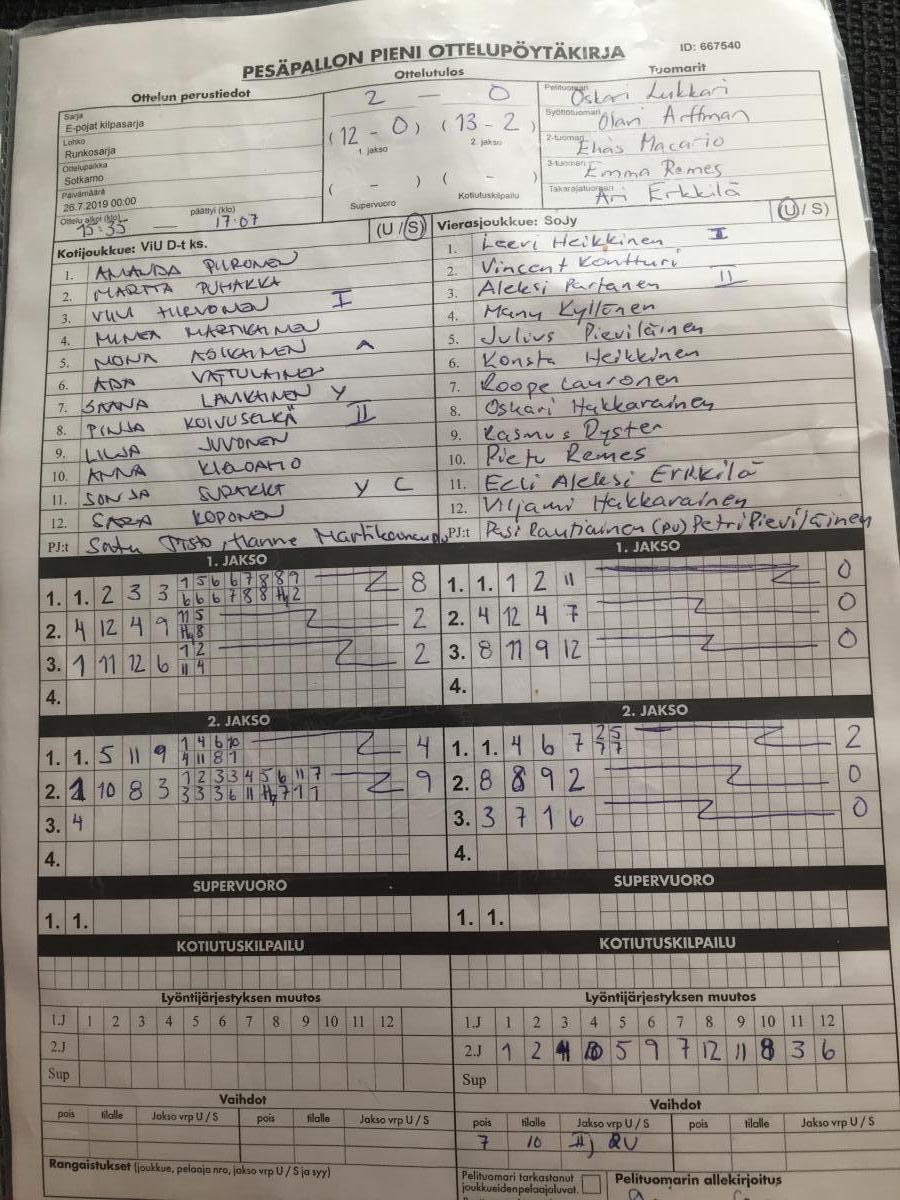 PESÄPALLON PIENI OTTELUPÖYTÄKIRJA
ID: 667540
Ottelun perustiedot
Sarja
E-pojat kilpasarja
Lohko
Runkosarja
Ottelupaikka
Sotkamo
Päivämäärä
26.7.2019 00:00
Ottelu alkoi (klo) päättyi (klo)
15:35 — 17:07
Ottelutulos
2 — 0
(12 - 0) (13 - 2)
1. jakso 2. jakso
( - ) ( - )
Supervuoro Kotiutuskilpailu
Tuomarit
Pelituomari Oskari Lukkari
Syöttötuomari Olari Arffman
2-tuomari Elias Macario
3-tuomari Emma Remes
Takarajatuomari Ari Erkkilä
Kotijoukkue: ViU D-t ks. (U / S)
1. AMANDA PIIRONEN
2. MARTTA PUHAKKA
3. VIIVI HIRVONEN I
4. MINEA MARTIKAINEN
5. NONA ASIKAINEN A
6. ADA VATTULAINEN
7. SAANA LAUKAINEN Y
8. PINJA KOIVUSELKÄ II
9. LILJA JUVONEN
10. ANNA
11. SONJA Y C
12. SARA KOPONEN
PJ:t Satu Hanne
Vierasjoukkue: SoJy (U / S)
1. Leevi Heikkinen I
2. Vincent Kontturi
3. Aleksi Partanen II
4. Manu Kyllönen
5. Julius Pieviläinen
6. Konsta Heikkinen
7. Roope Lauronen
8. Oskari Hakkarainen
9. Rasmus Ryster
10. Pietu Remes
11. Eeli Aleksi Erkkilä
12. Viljami Hakkarainen
PJ:t Pasi Rautiainen (PV) Petri Pieviläinen
1. JAKSO
1. 1. 2 3 3 1 5 6 6 7 8 8 9 8
6 6 6 7 8 8 2
2. 4 12 4 9 11 5 2
8
3. 1 11 12 6 1 2 2
11 4
4.
1. JAKSO
1. 1. 1 2 11 0
2. 4 12 4 7 0
3. 8 11 9 12 0
4.
2. JAKSO
1. 1. 5 11 9 1 4 6 10 4
4 11 8 1
2. 1 10 8 3 1 2 3 3 4 5 6 11 7 9
3 3 3 6 11 7 1 1
3. 4
4.
2. JAKSO
1. 1. 4 6 7 2 5 2
7 7
2. 8 8 9 2 0
3. 3 7 1 6 0
4.
SUPERVUORO
1. 1.
SUPERVUORO
1. 1.
KOTIUTUSKILPAILU
KOTIUTUSKILPAILU
Lyöntijärjestyksen muutos
1.J 1 2 3 4 5 6 7 8 9 10 11 12
2.J
Sup
Lyöntijärjestyksen muutos
1.J 1 2 3 4 5 6 7 8 9 10 11 12
2.J 1 2 4 10 5 9 7 12 11 8 3 6
Sup
Vaihdot
pois tilalle Jakso vrp U / S pois tilalle Jakso vrp U / S
Vaihdot
pois tilalle Jakso vrp U / S pois tilalle Jakso vrp U / S
7 10
Rangaistukset (joukkue, pelaaja nro, jakso vrp U / S ja syy)
Pelituomari tarkastanut
joukkueiden pelaajaluvat.
Pelituomarin allekirjoitus